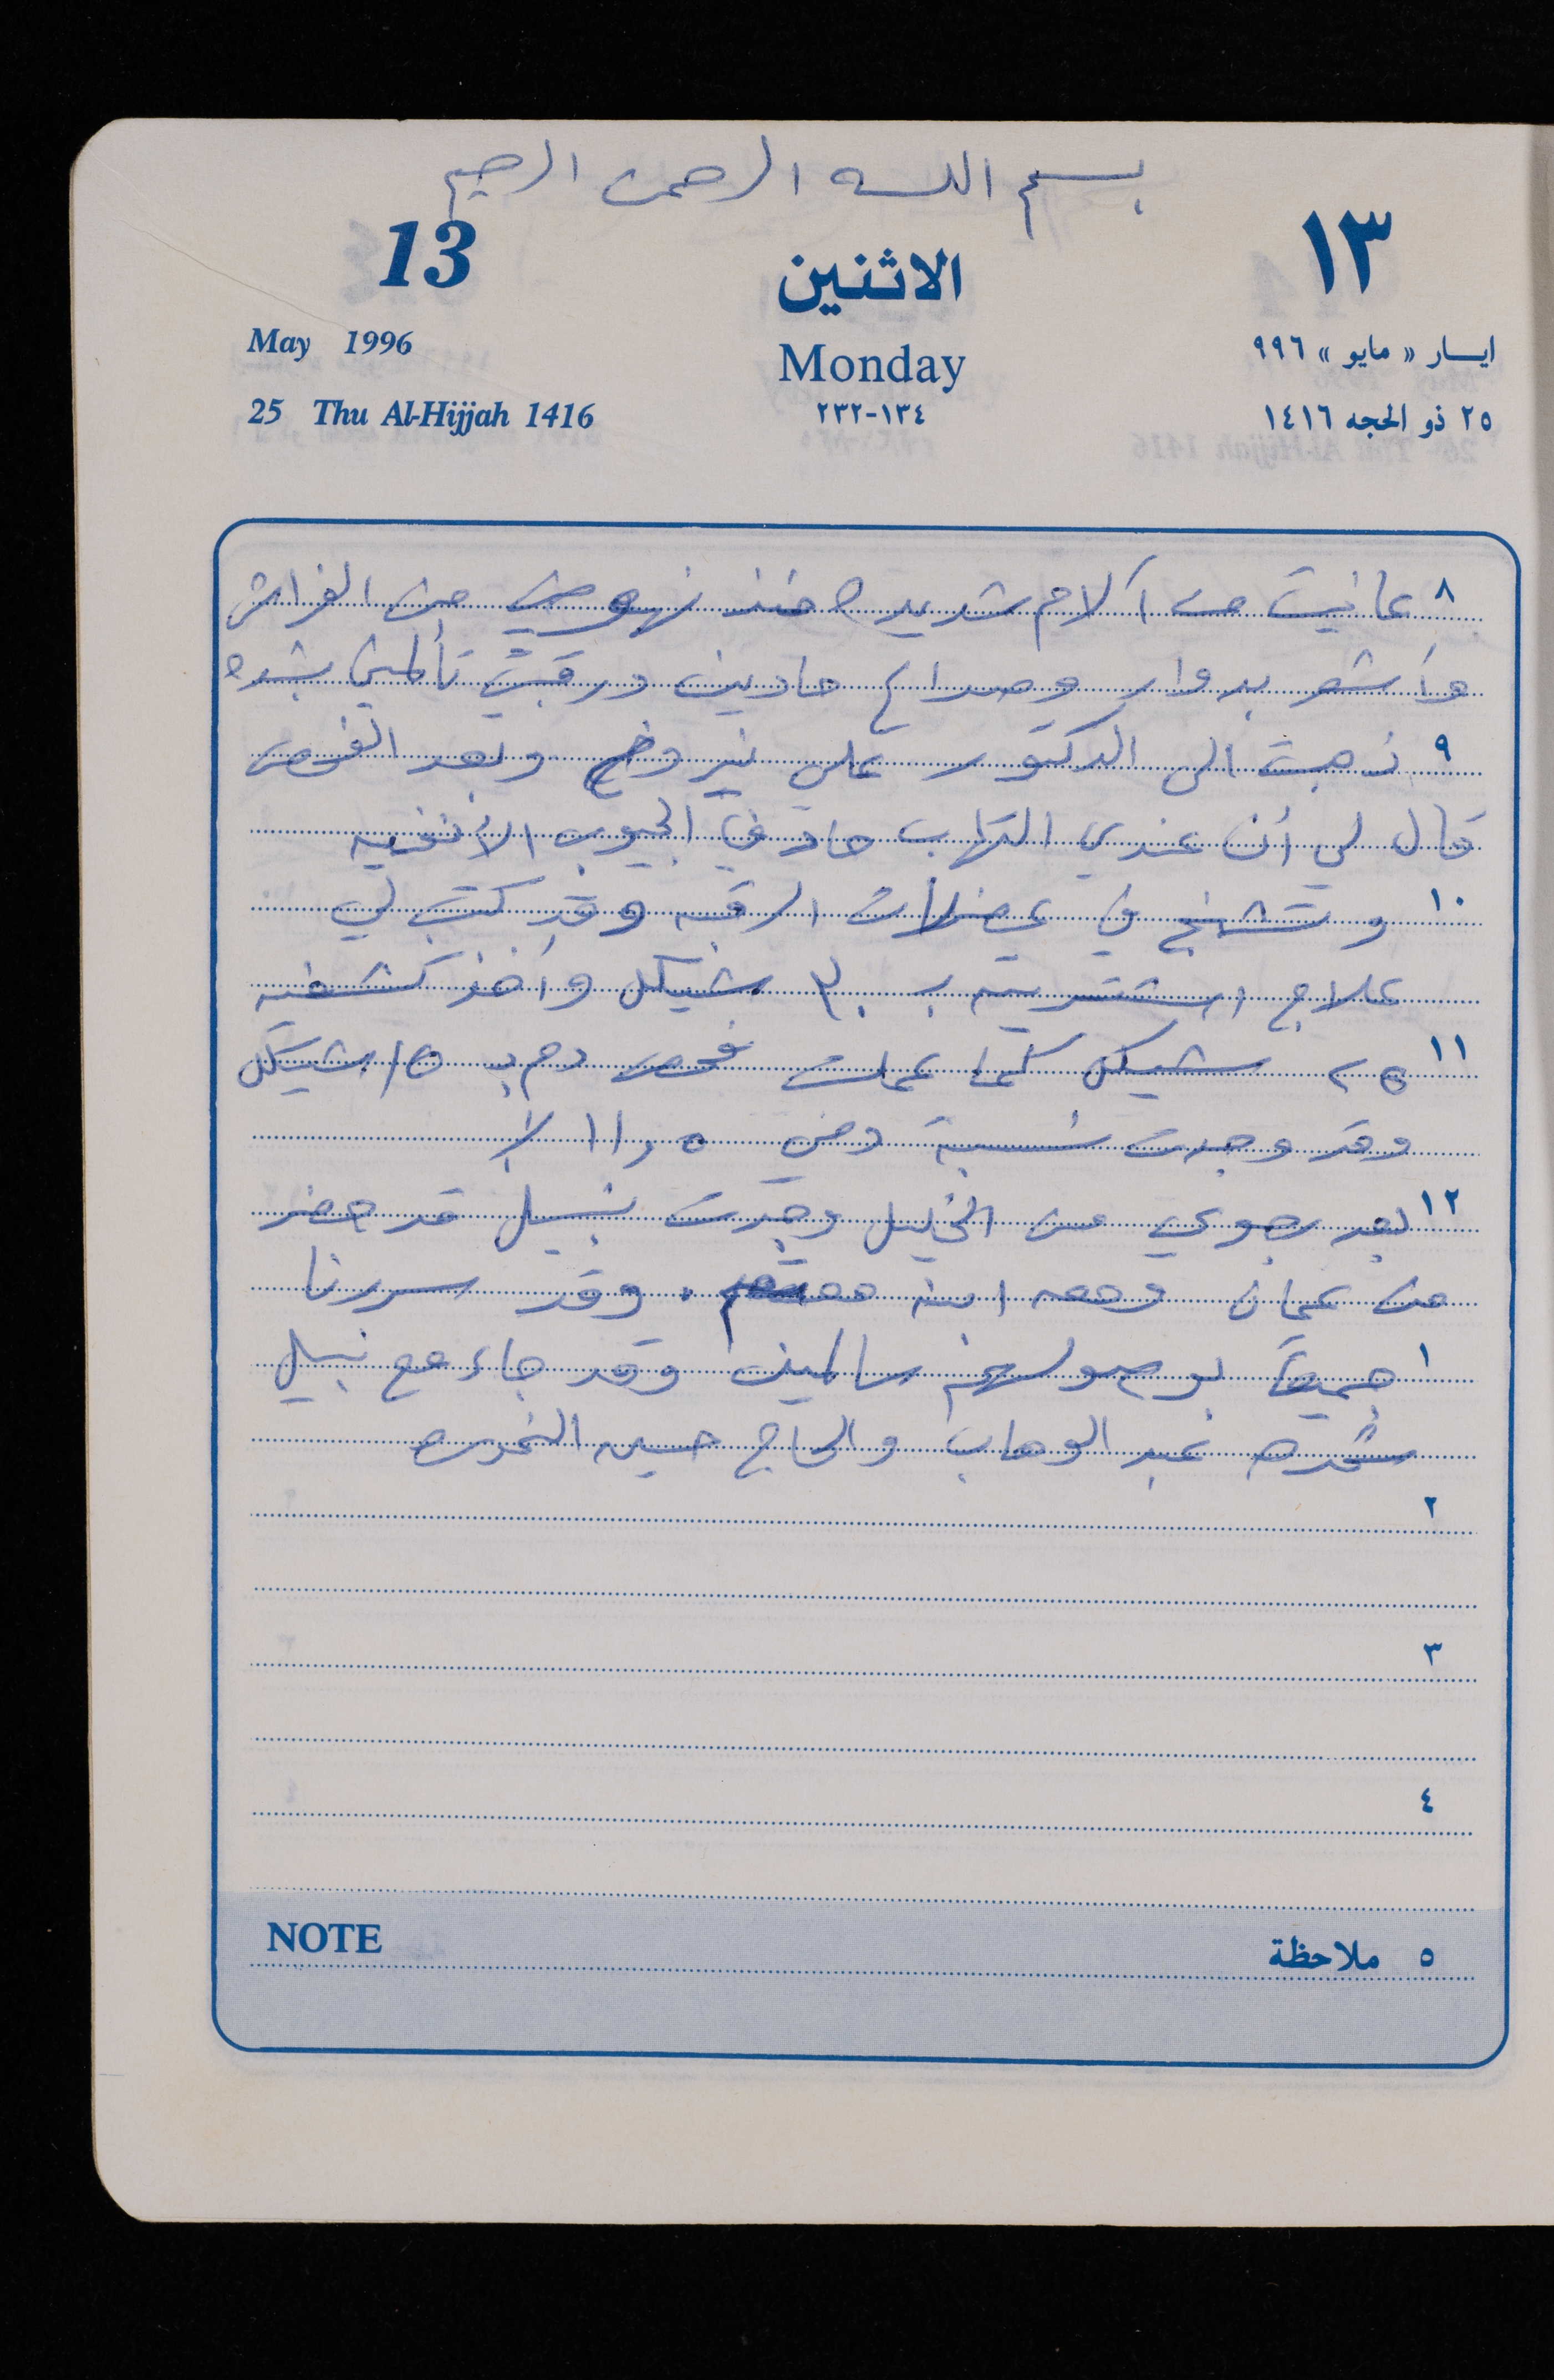 بسم الله الرحمن الرحيم
13 الاثنين ١٣
May 1996 Monday ايسار « مايو » ٩٩٦
25 Thu Al-Hijjah 1416 ١٣٤-٢٣٢ ٢٥ ذو الحجه ١٤١٦
٨ عانيت من آلام شديده منذ نهوضي من الفراش
وأشعر بدوار وصداع حادين ورقبتي تألمني بشده
٩ ذهبت الى الدكتور علي وبعد الفحص
قال لي أن عندي التهاب حاد في الجيوب الأنفيه
١٠ وتشنج في عضلات الرقبه وقد كتب لي
علاج اشتريته ب ٣٠ شيكل وأخذ كشفيه
١١ ٢٥ شيكل كما عملت فحص دم ب ١٥ شيكل
وقد وجدت نسبة دمي ١١,٥
١٢ بعد رجوعي من الخليل وجدت نبيل قد حضر
من عمان ومعه ابنه معتصم . وقد سررنا
١ جميعاً بوصولهم سالمين وقد جاء مع نبيل
شحده عبد الوهاب والحاج حسين
٢
٣
٤
NOTE ٥ ملاحظة